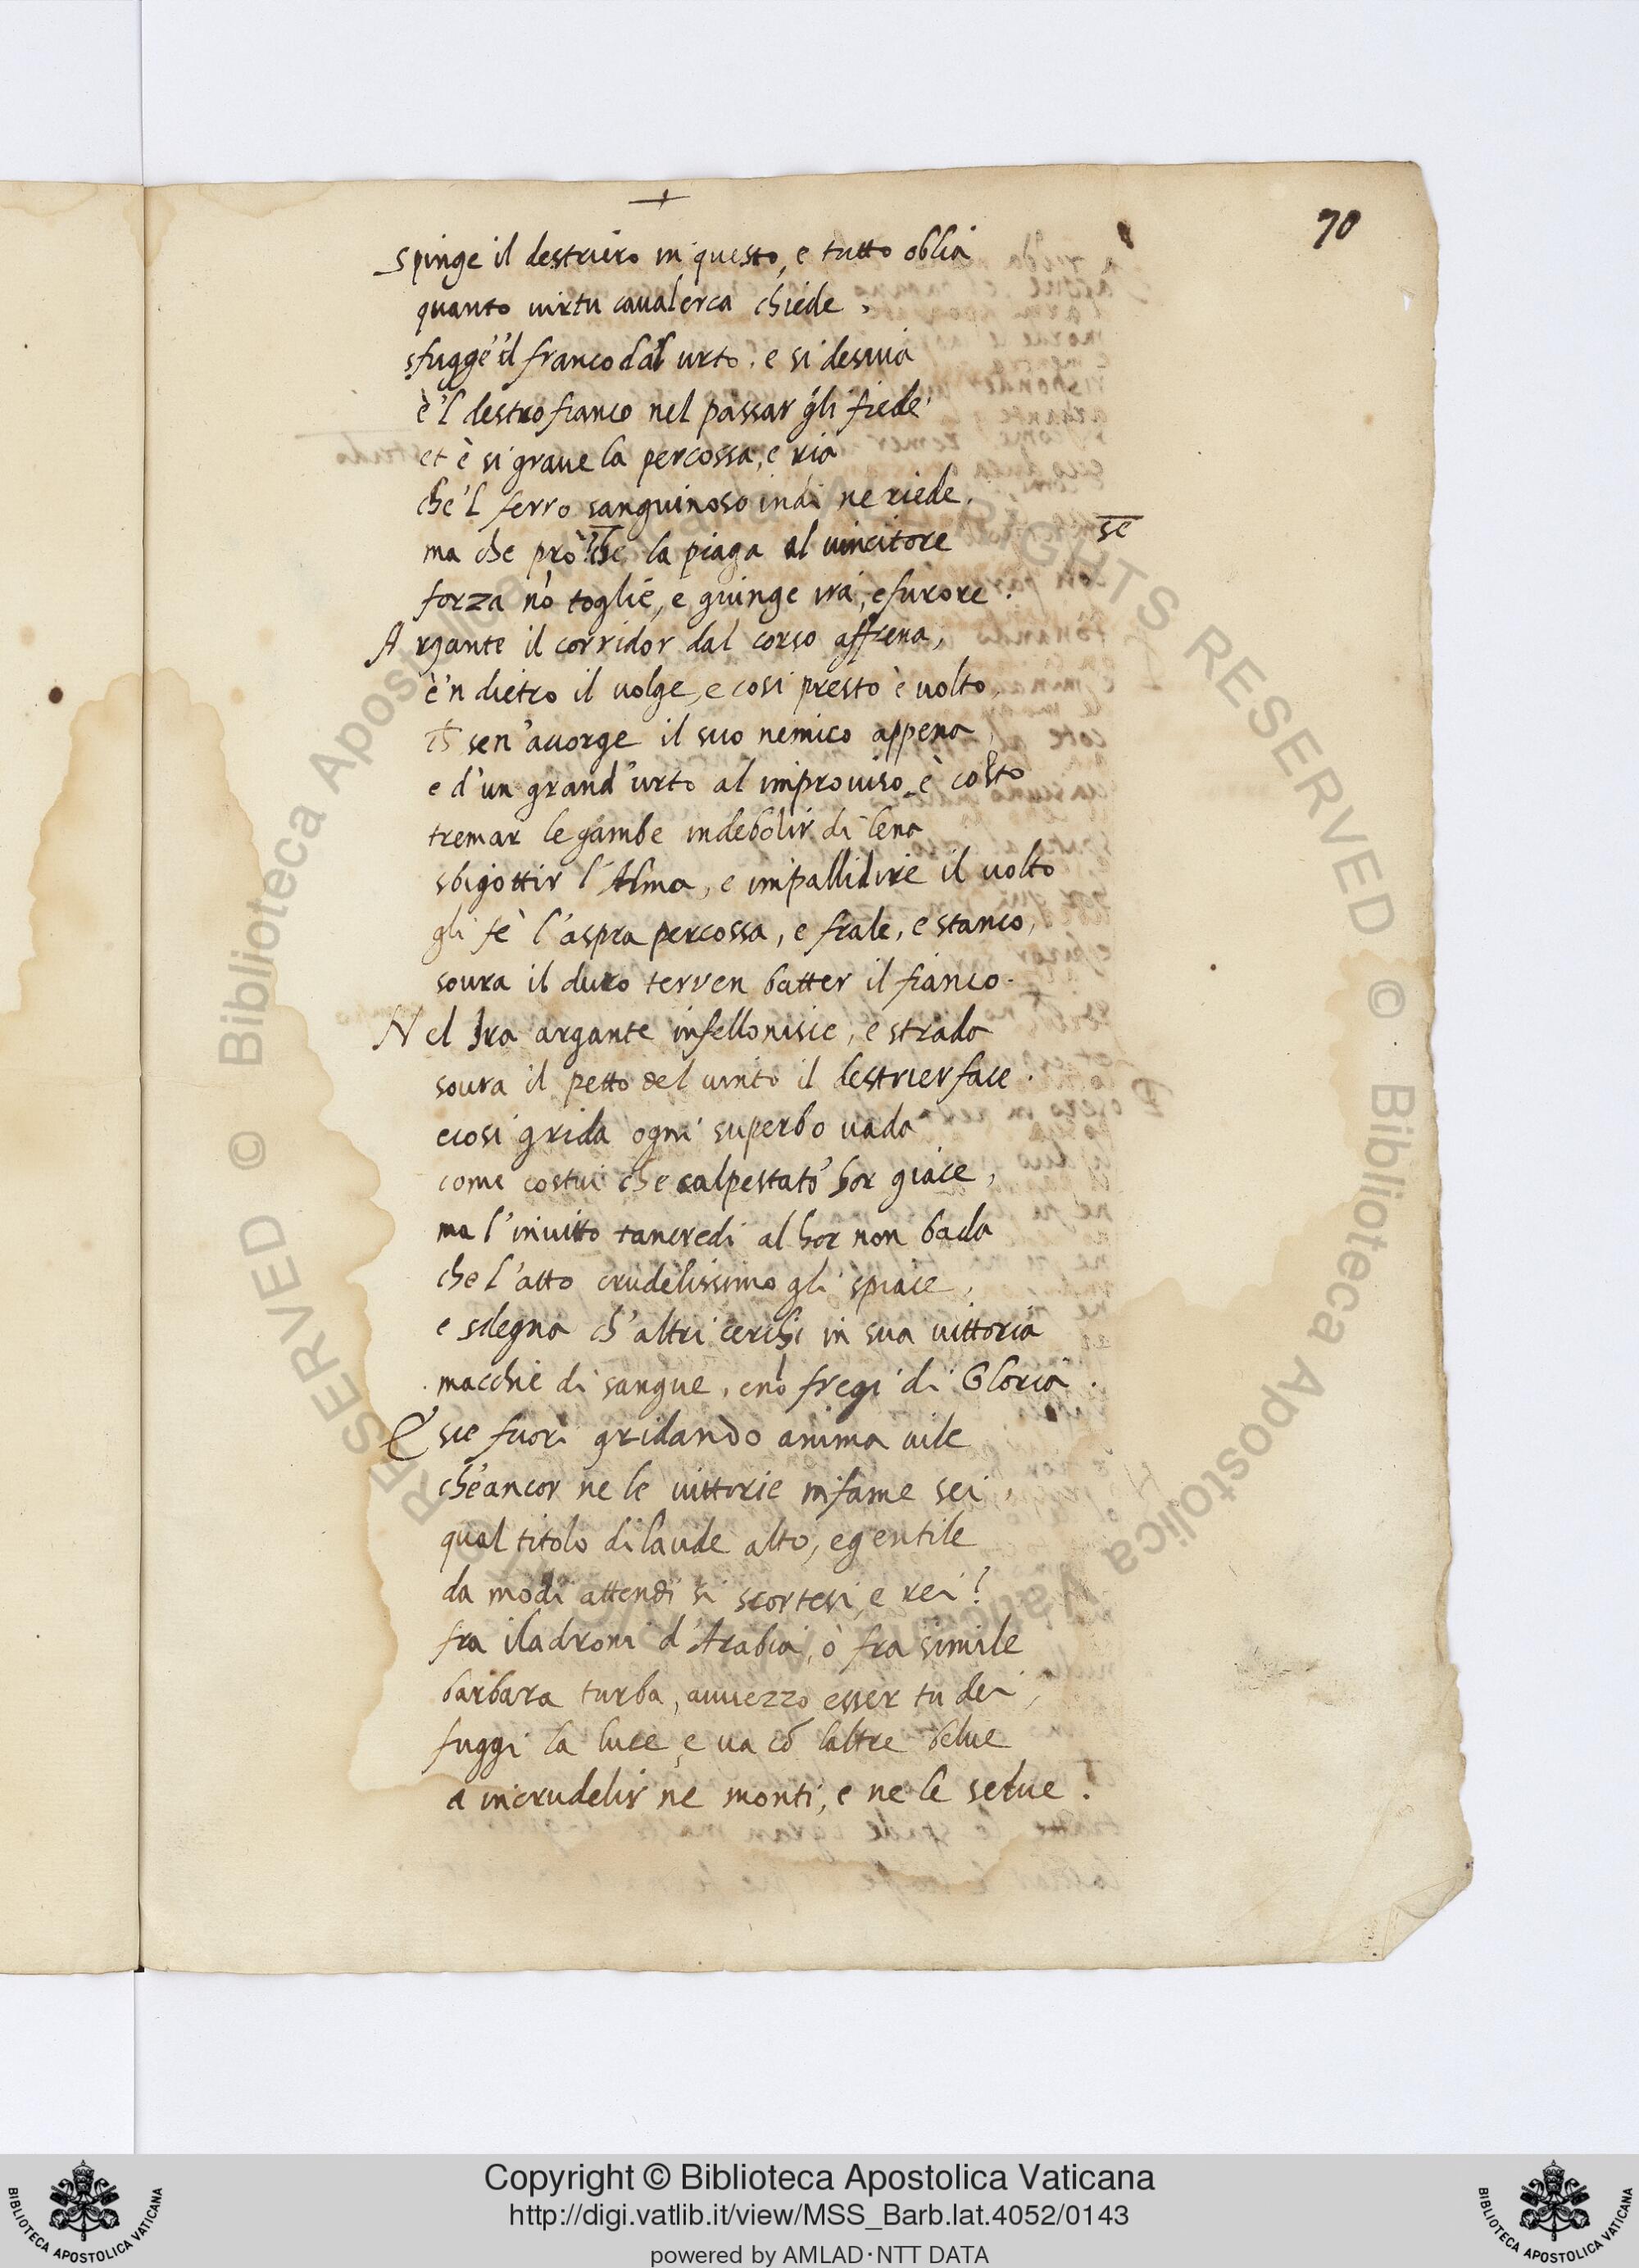 70
Spinge il destriero in questo, e tutto oblia
quanto uirtu caualerca chiede,
sfugge'il franco dal urto. e si desuia
è'l destro fianco nel passar gli fiede
et è si graue la percossa, e ria
che'l ferro sanguinoso indi ne riede.
ma che prò che la piaga al uincitore
se
forza nō toglie, e giunge ira, e furore.
Argante il corridor dal corso affrena,
è'n dietro il uolge, e cosi presto è uolto,
ch sen'auorge il suo nemico appena,
e d'un grand'urto al improuiso è colto
tremar le gambe indebolir di lena
sbigottir l'Alma, e impallidire il uolto
gli fè l'aspra percossa, e frale, e stanco,
soura il duro terren batter il fianco.
Nel Ira argante infellonisie, e strada
soura il petto del uinto il destrier face.
ecosi grida ogni superbo uada
come costui che calpestato hor giace,
ma l'inuitto tancredi al hor non bada
che l'atto crudelissimo gli spiace,
e sdegna ch'altri cerchi in sua uittoria
macchie di sangue, enō fregi di Gloria.
E sie fuori gridando anima uile
ch'ancor ne le uittorie infame sei,
qual titolo di laude alto, egentile
da modi attendi si scortesi, e rei?
fra iladroni d'Arabia, ò fra simile
barbara turba, auuezzo esser tu dei,
fuggi la luce, e ua cō laltre belue
a incrudelir ne monti, e ne le selue.
RESERVED © Biblioteca Apostolica Vaticana ALL RIGHTS RESERVED © Biblioteca Apostolica Vaticana
BIBLIOTECA APOSTOLICA VATICANA
Copyright © Biblioteca Apostolica Vaticana
http://digi.vatlib.it/view/MSS_Barb.lat.4052/0143
powered by AMLAD·NTT DATA
BIBLIOTECA APOSTOLICA VATICANA